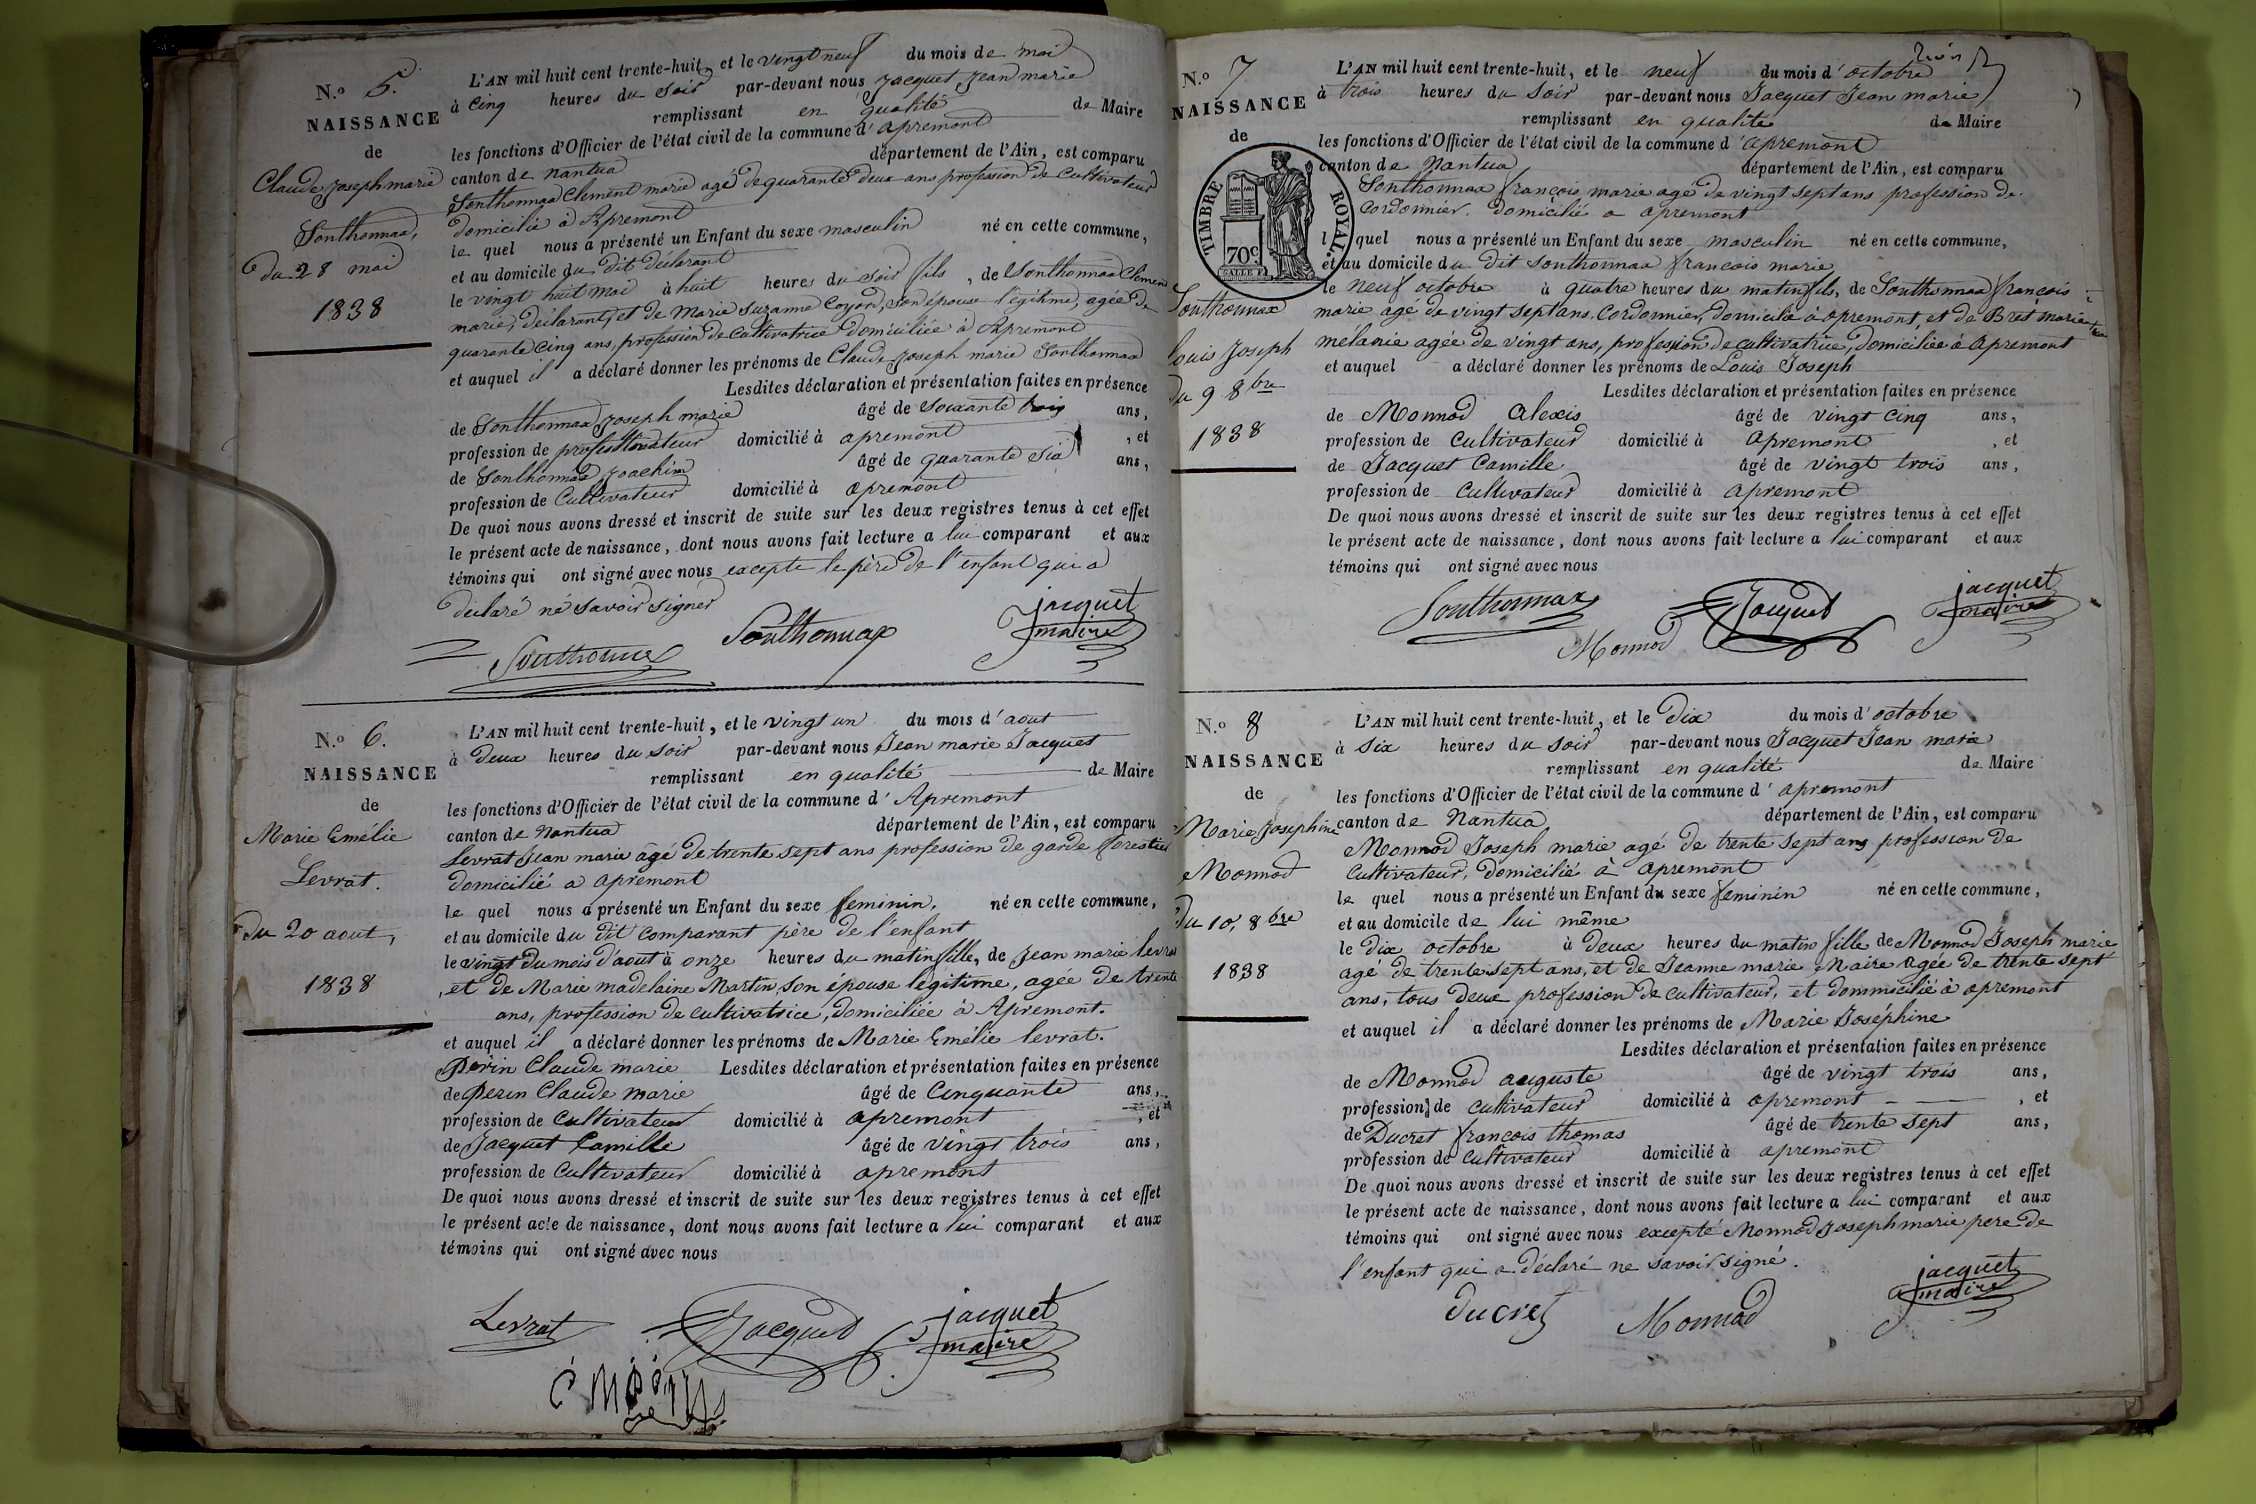 N.º 5.
NAISSANCE
de
Claude Joseph marie
Sonthonnax,
du 28 mai
1838
L'AN mil huit cent trente-huit, et le vingt neuf du mois de mai
à Cinq heures du soir par-devant nous Jacquet Jean marie
remplissant en qualité de Maire
les fonctions d'Officier de l'état civil de la commune d'apremont
canton de nantua département de l'Ain, est comparu
Sonthonnax Clement marie agé de quarante deux ans profession de Cultivateur
domicilié à Apremont
le quel nous a présenté un Enfant du sexe masculin né en cette commune,
et au domicile du dit déclarant
le vingt huit mai à huit heures du soir fils, de Sonthonnax Clement
marie, déclarant, et de Marie Suzanne Coyard, son épouse légitime, agée de
quarante cinq ans, profession de cultivatrice domiciliée à Apremont
et auquel il a déclaré donner les prénoms de Claude Joseph marie Sonthonnax
Lesdites déclaration et présentation faites en présence
de Sonthonnax Joseph marie âgé de soixante trois ans,
profession de domicilié à apremont, et
de Sonthonnax Joachim âgé de quarante six ans,
profession de Cultivateur domicilié à apremont
De quoi nous avons dressé et inscrit de suite sur les deux registres tenus à cet effet
le présent acte de naissance, dont nous avons fait lecture a lui comparant et aux
témoins qui ont signé avec nous excepte le père de l'enfant qui a
déclaré ne savoir signer
Sonthonnax Sonthonnax jacquet
maire
N.º 6.
NAISSANCE
de
Marie Emélie
Levrat.
du 20 aout,
1838
L'AN mil huit cent trente-huit, et le vingt un du mois d'aout
à deux heures du soir par-devant nous Jean marie Jacquet
remplissant en qualité de Maire
les fonctions d'Officier de l'état civil de la commune d'Apremont
canton de nantua département de l'Ain, est comparu
Levrat Jean marie âgé de trente sept ans profession de garde forestier
domicilié a apremont
le quel nous a présenté un Enfant du sexe feminin, né en cette commune,
et au domicile du dit comparant père de l'enfant
le vingt du mois d'aout à onze heures du matin fille, de Jean marie levrat
, et de Marie madelaine Martin, son épouse légitime, agée de trente
ans, profession de cultivatrice, domiciliée à Apremont.
et auquel il a déclaré donner les prénoms de Marie Emélie levrat.
Perin Claude marie Lesdites déclaration et présentation faites en présence
de Perin Claude marie âgé de Cinquante ans,
profession de cultivateur domicilié à apremont, et
de Jacquet Camille âgé de vingt trois ans,
profession de Cultivateur domicilié à apremont
De quoi nous avons dressé et inscrit de suite sur les deux registres tenus à cet effet
le présent acte de naissance, dont nous avons fait lecture a lui comparant et aux
témoins qui ont signé avec nous
Levrat Jacquet jacquet
maire
N.º 7
NAISSANCE
de
TIMBRE ROYAL.
70c
Sonthonnax
louis Joseph
du 9 8bre
1838
L'AN mil huit cent trente-huit, et le neuf du mois d'octobre
à trois heures du soir par-devant nous Jacquet Jean marie
remplissant en qualité de Maire
les fonctions d'Officier de l'état civil de la commune d'apremont
canton de Nantua département de l'Ain, est comparu
Sonthonnax françois marie agé de vingt sept ans profession de
Cordonnier. domicilié a apremont
l quel nous a présenté un Enfant du sexe masculin né en cette commune,
et au domicile du dit sonthonnax françois marie
le neuf octobre à quatre heures du matin fils, de Sonthonnax françois
marie agé de vingt sept ans, Cordonnier, domicilié à apremont, et de Bret marie
mélanie agée de vingt ans, profession de cultivatrice, domiciliée à apremont
et auquel a déclaré donner les prénoms de Louis Joseph
Lesdites déclaration et présentation faites en présence
de Monnod Alexis âgé de vingt cinq ans,
profession de Cultivateur domicilié à apremont, et
de Jacquet Camille âgé de vingt trois ans,
profession de Cultivateur domicilié à apremont
De quoi nous avons dressé et inscrit de suite sur les deux registres tenus à cet effet
le présent acte de naissance, dont nous avons fait lecture a lui comparant et aux
témoins qui ont signé avec nous
Sonthonnax Monnod Jacquet jacquet
maire
N.º 8
NAISSANCE
de
Marie Josephine
Monnod
du 10, 8bre
1838
L'AN mil huit cent trente-huit, et le dix du mois d'octobre
à six heures du soir par-devant nous Jacquet Jean marie
remplissant en qualité de Maire
les fonctions d'Officier de l'état civil de la commune d'apremont
canton de Nantua département de l'Ain, est comparu
Monnod Joseph marie agé de trente sept ans profession de
Cultivateur, domicilié à apremont
le quel nous a présenté un Enfant du sexe feminin né en cette commune,
et au domicile de lui même
le dix octobre à deux heures du matin fille de Monnod Joseph marie
agé de trente sept ans, et de Jeanne marie Maire agée de trente sept
ans, tous deux profession de cultivateur, et dommicilié à apremont
et auquel il a déclaré donner les prénoms de Marie Josephine
Lesdites déclaration et présentation faites en présence
de Monnod auguste âgé de vingt trois ans,
profession de cultivateur domicilié à apremont, et
de Ducret françois thomas âgé de trente sept ans,
profession de cultivateur domicilié à apremont
De quoi nous avons dressé et inscrit de suite sur les deux registres tenus à cet effet
le présent acte de naissance, dont nous avons fait lecture a lui comparant et aux
témoins qui ont signé avec nous excepté Monnod Joseph marie pere de
l'enfant qui a déclaré ne savoir signé.
ducret Monnod jacquet
maire